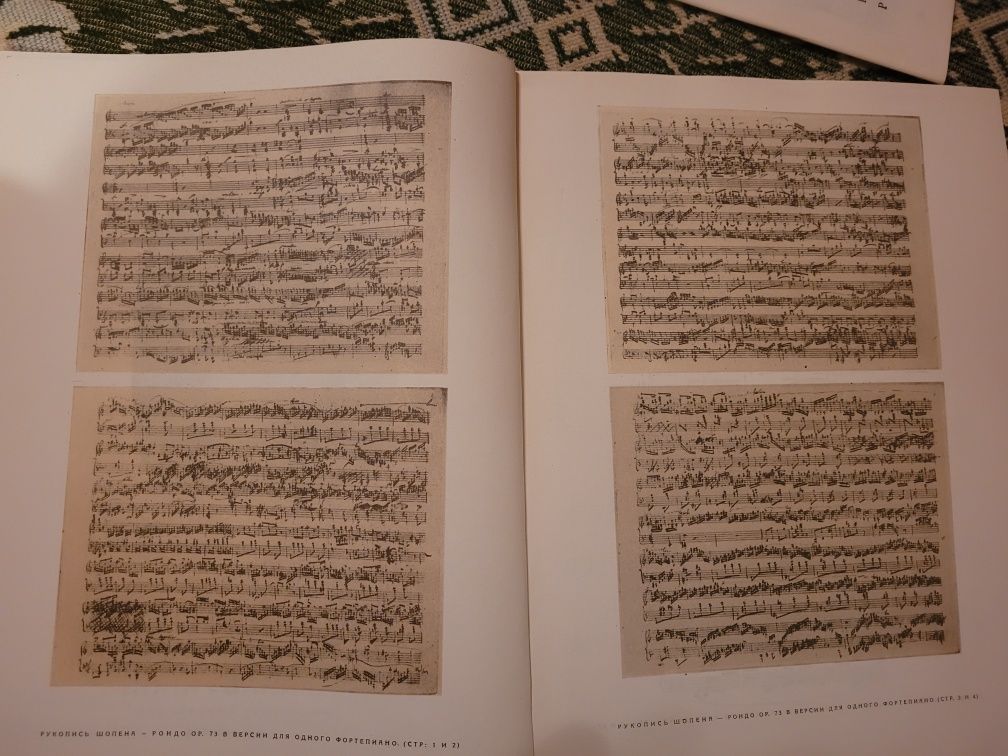 РУКОПИСЬ ШОПЕНА — РОНДО OP. 73 В ВЕРСИИ ДЛЯ ОДНОГО ФОРТЕПИАНО. (СТР: 1 И 2)
РУКОПИСЬ ШОПЕНА — РОНДО OP. 73 В ВЕРСИИ ДЛЯ ОДНОГО ФОРТЕПИАНО (СТР. 3 И 4)